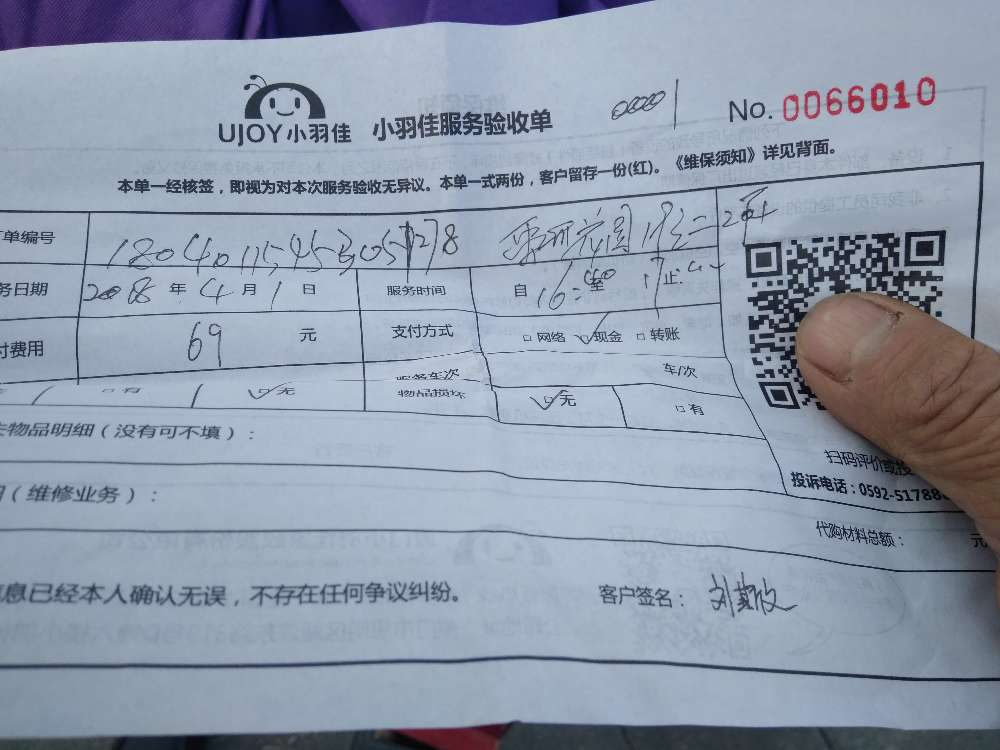 UJOY小羽佳 小羽佳服务验收单 00001 No. 0066010
本单一经核签，即视为对本次服务验收无异议。本单一式两份，客户留存一份(红)。《维保须知》详见背面。
单编号
务日期 2018 年 4 月 1 日 服务时间 自 16: 至 17 止
付费用 69 元 支付方式 □网络 ☑现金 □转账
服务车次 车/次
□有 ☑无 物品损坏 ☑无 □有
物品明细（没有可不填）：
（维修业务）：
扫码评价或投
投诉电话：0592-51788
代购材料总额： 元
信息已经本人确认无误，不存在任何争议纠纷。 客户签名：刘